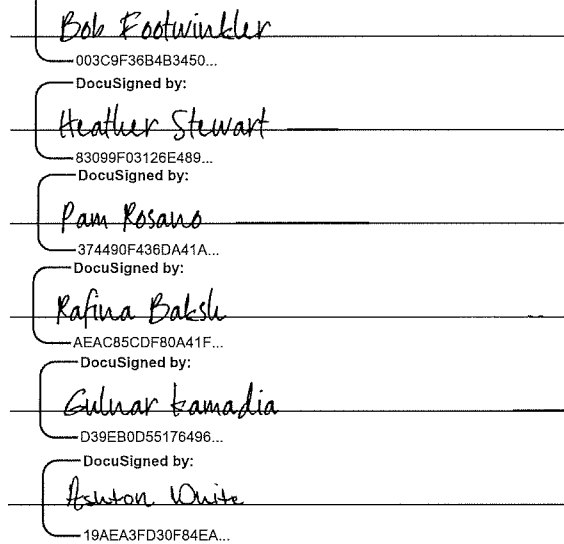 Bob Footwinkler
003C9F36B4B3450...
DocuSigned by:
Heather Stewart
83099F03126E489...
DocuSigned by:
Pam Rosano
374490F436DA41A...
DocuSigned by:
Rafina Baksh
AEAC85CDF80A41F...
DocuSigned by:
Gulnar Kamadia
D39EB0D55176496...
DocuSigned by:
Ashton White
19AEA3FD30F84EA...